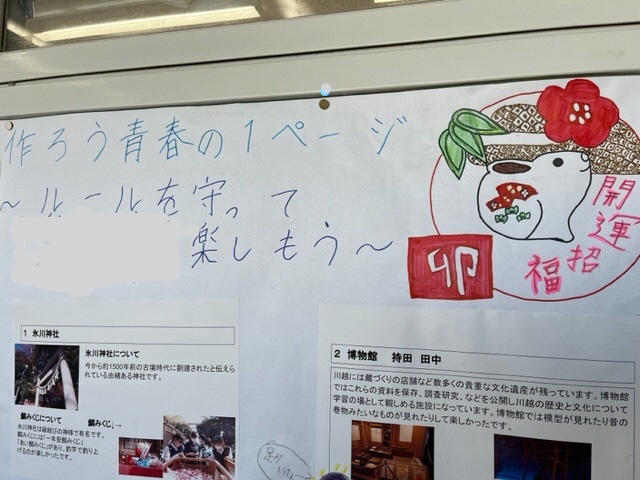 作ろう青春の1ページ
～ルールを守って
楽しもう～
開運
招福
卯
1 氷川神社
氷川神社について
今から約1500年前の古墳時代に創建されたと伝えら
れている由緒ある神社です。
鯛みくじについて
鯛みくじ→
氷川神社は縁結びの神様で有名です。
鯛みくじには「一年安鯛みくじ」
「あい鯛みくじ」があり、釣竿で釣り上
げるのが楽しかったです。
2 博物館 持田 田中
川越には蔵づくりの店舗など数多くの貴重な文化遺産が残っています。博物館
ではこれらの資料を保存、調査研究、などを公開し川越の歴史と文化について
学習の場として親しめる施設になっています。博物館では模型が見れたり昔の
巻物みたいなものが見れたりして楽しかったです。